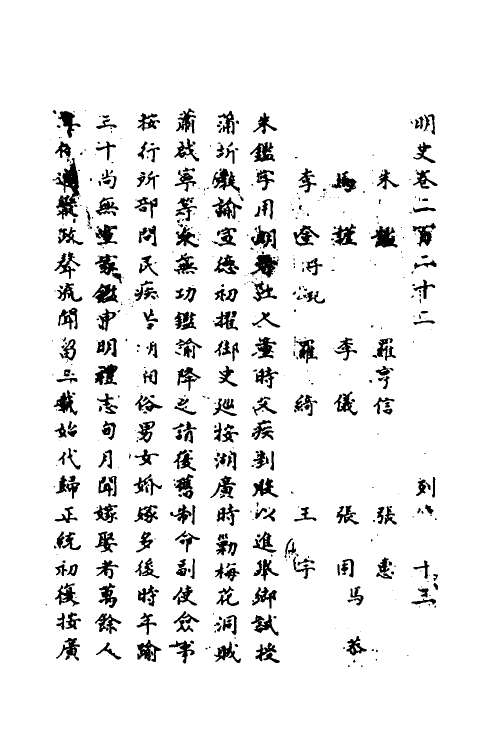 明史卷二百二十二　　　列傳　十三
朱鑑　羅亨信　張惠
馬謹　李儀　張固　馬恭
李奎　羅綺　王宇
朱鑑字用明晉江人童時父疾刲股以進舉鄉試授
蒲圻教諭宣德初擢御史巡按湖廣時勦梅花洞賊
蕭啟寧等來無功鑑諭降之請復舊制命副使僉事
按行所部問民疾苦湖湘俗男女婚嫁多後時年踰
三十尚無室家鑑申明禮志旬月間嫁娶者萬餘人
嚴政聲流聞留二載始代歸正統初復按廣